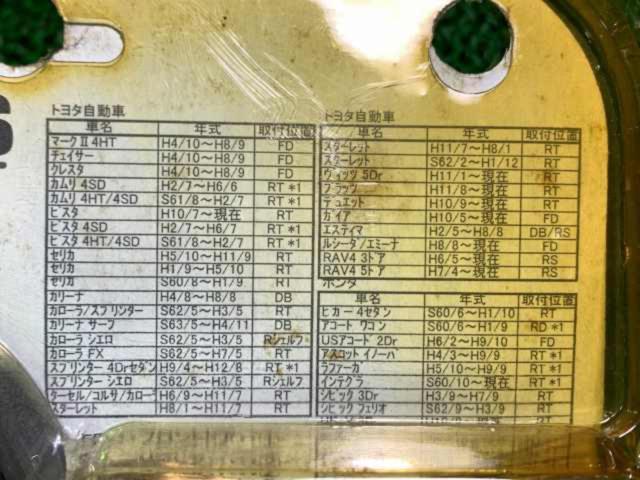 トヨタ自動車
車名 年式 取付位置
マークⅡ 4HT H4/10～H8/9 FD
チェイサー H4/10～H8/9 FD
クレスタ H4/10～H8/9 FD
カムリ 4SD H2/7～H6/6 RT *1
カムリ 4HT/4SD S61/8～H2/7 RT *1
ビスタ H10/7～現在 RT
ビスタ 4SD H2/7～H6/7 RT *1
ビスタ 4HT/4SD S61/8～H2/7 RT *1
セリカ H5/10～H11/9 RT
セリカ H1/9～H5/10 RT
セリカ S60/8～H1/9 RT
カリーナ H4/8～H8/8 DB
カローラ/スプリンター S62/5～H3/5 RT
カリーナ サーフ S63/5～H4/11 DB
カローラ シエロ S62/5～H3/5 Rシェルフ
カローラ FX S62/5～H7/5 RT
スプリンター 4Drセダン H9/4～H12/8 RT *1
スプリンター シエロ S62/5～H3/5 Rシェルフ
ターセル/コルサ/カローラ H6/9～H11/7 RT
スターレット H8/1～H11/7 RT
トヨタ自動車
車名 年式 取付位置
スターレット H11/7～H8/1 RT
スターレット S62/2～H1/12 RT
ヴィッツ 5Dr H11/1～現在 RT
プラッツ H11/8～現在 RT
デュエット H10/9～現在 RT
ガイア H10/5～現在 FD
エスティマ H2/5～H8/8 DB/RS
ルシーダ/エミーナ H8/8～現在 FD
RAV4 3ドア H6/5～現在 RS
RAV4 5ドア H7/4～現在 RS
ホンダ
車名 年式 取付位置
ビガー 4セダン S60/6～H1/10 RT
アコード ワゴン S60/6～H1/9 RD *1
USアコード 2Dr H6/2～H9/10 FD
アスコット イノーバ H4/3～H9/9 RT *1
ラファーガ H5/10～H9/9 RT *1
インテグラ S60/10～現在 RT *1
シビック 3Dr H3/9～H7/9 RT
シビック フェリオ S62/9～H3/9 RT